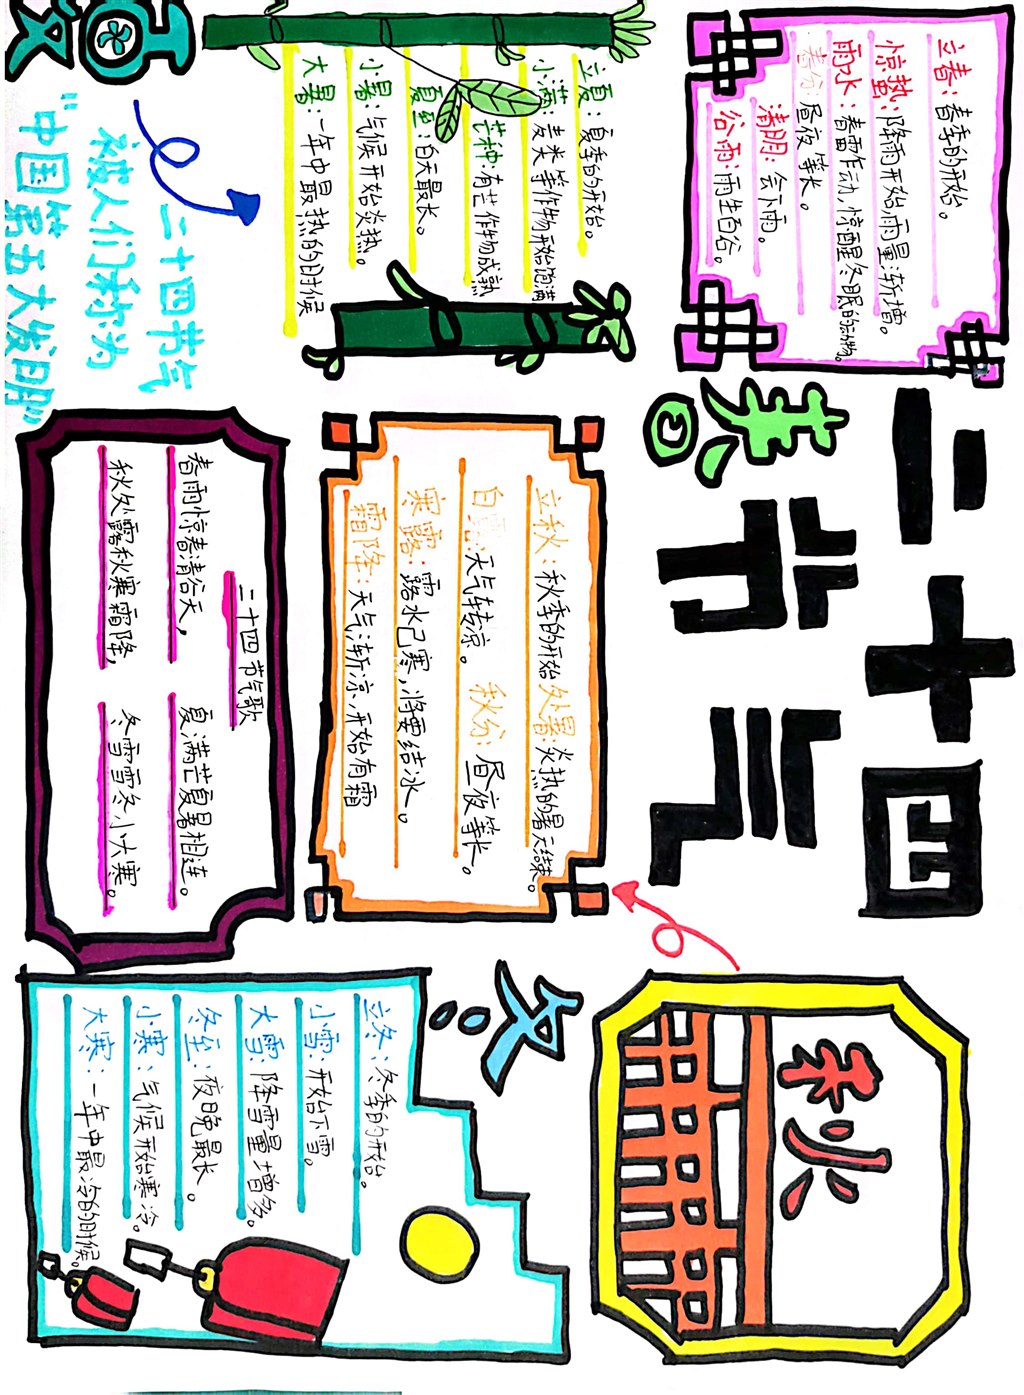 二十四
节气
春
立春：春季的开始。
惊蛰：降雨开始，雨量渐增。
雨水：春雷乍动，惊醒冬眠的动物。
春分：昼夜等长。
清明：会下雨。
谷雨：雨生百谷。
夏
立夏：夏季的开始。
小满：麦类等作物开始饱满
芒种：有芒作物成熟
夏至：白天最长。
小暑：气候开始炎热。
大暑：一年中最热的时候
二十四节气
被人们称为
“中国第五大发明”
立秋：秋季的开始 处暑：炎热的暑天结束。
白露：天气转凉。 秋分：昼夜等长。
寒露：露水已寒，将要结冰。
霜降：天气渐凉，开始有霜
秋
二十四节气歌
春雨惊春清谷天，夏满芒夏暑相连。
秋处露秋寒霜降，冬雪雪冬小大寒。
冬
立冬：冬季的开始。
小雪：开始下雪。
大雪：降雪量增多。
冬至：夜晚最长。
小寒：气候开始寒冷。
大寒：一年中最冷的时候。